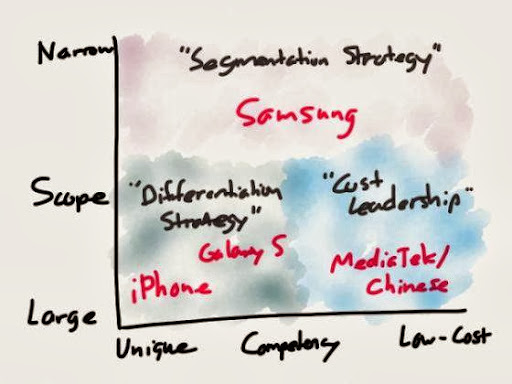 Narrow
"Segmentation Strategy"
Samsung
Scope
"Differentiation
Strategy"
Galaxy S
iPhone
"Cost
Leadership"
MediaTek/
Chinese
Large
Unique
Competency
Low-Cost